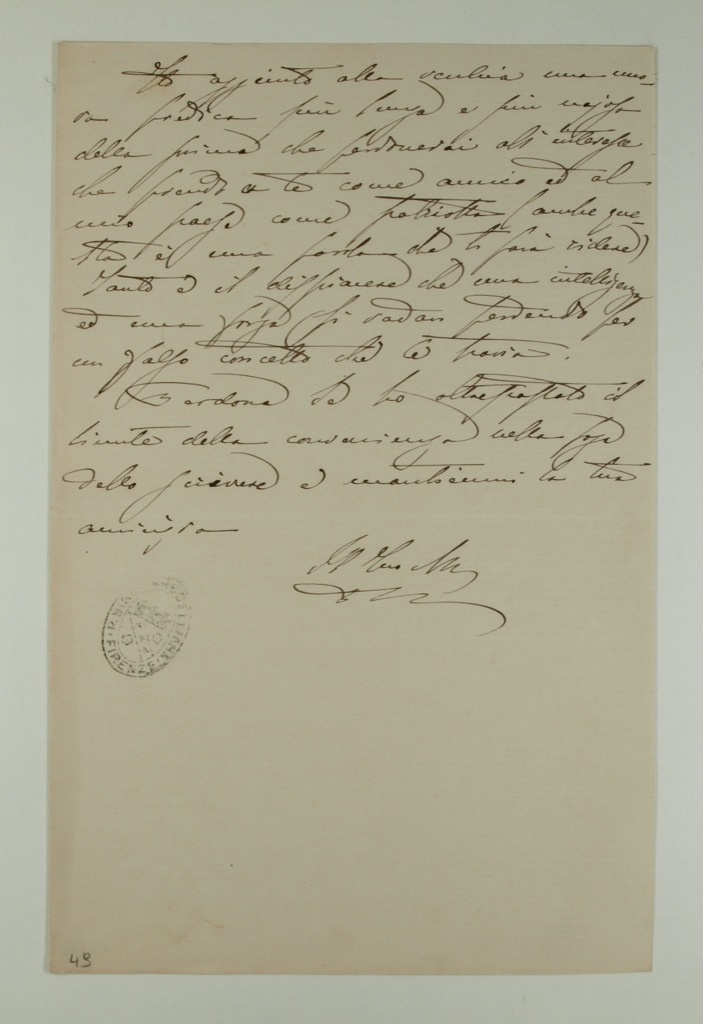 Ho aggiunto alla vecchia una nuo-
va predica più lunga e più noiosa
della prima che perdonerai all'interesse
che prendo a te come amico ed al
mio paese come patriotta (anche que-
sta è una parola che ti farà ridere)
Tanto è il dispiacere che una intelligenza
ed una forza si vadan perdendo per
un falso concetto che le travia.
Perdona se ho oltrepassato il
limite della convenienza nella foga
dello scrivere e mantienmi la tua
amicizia
FIRENZE
49